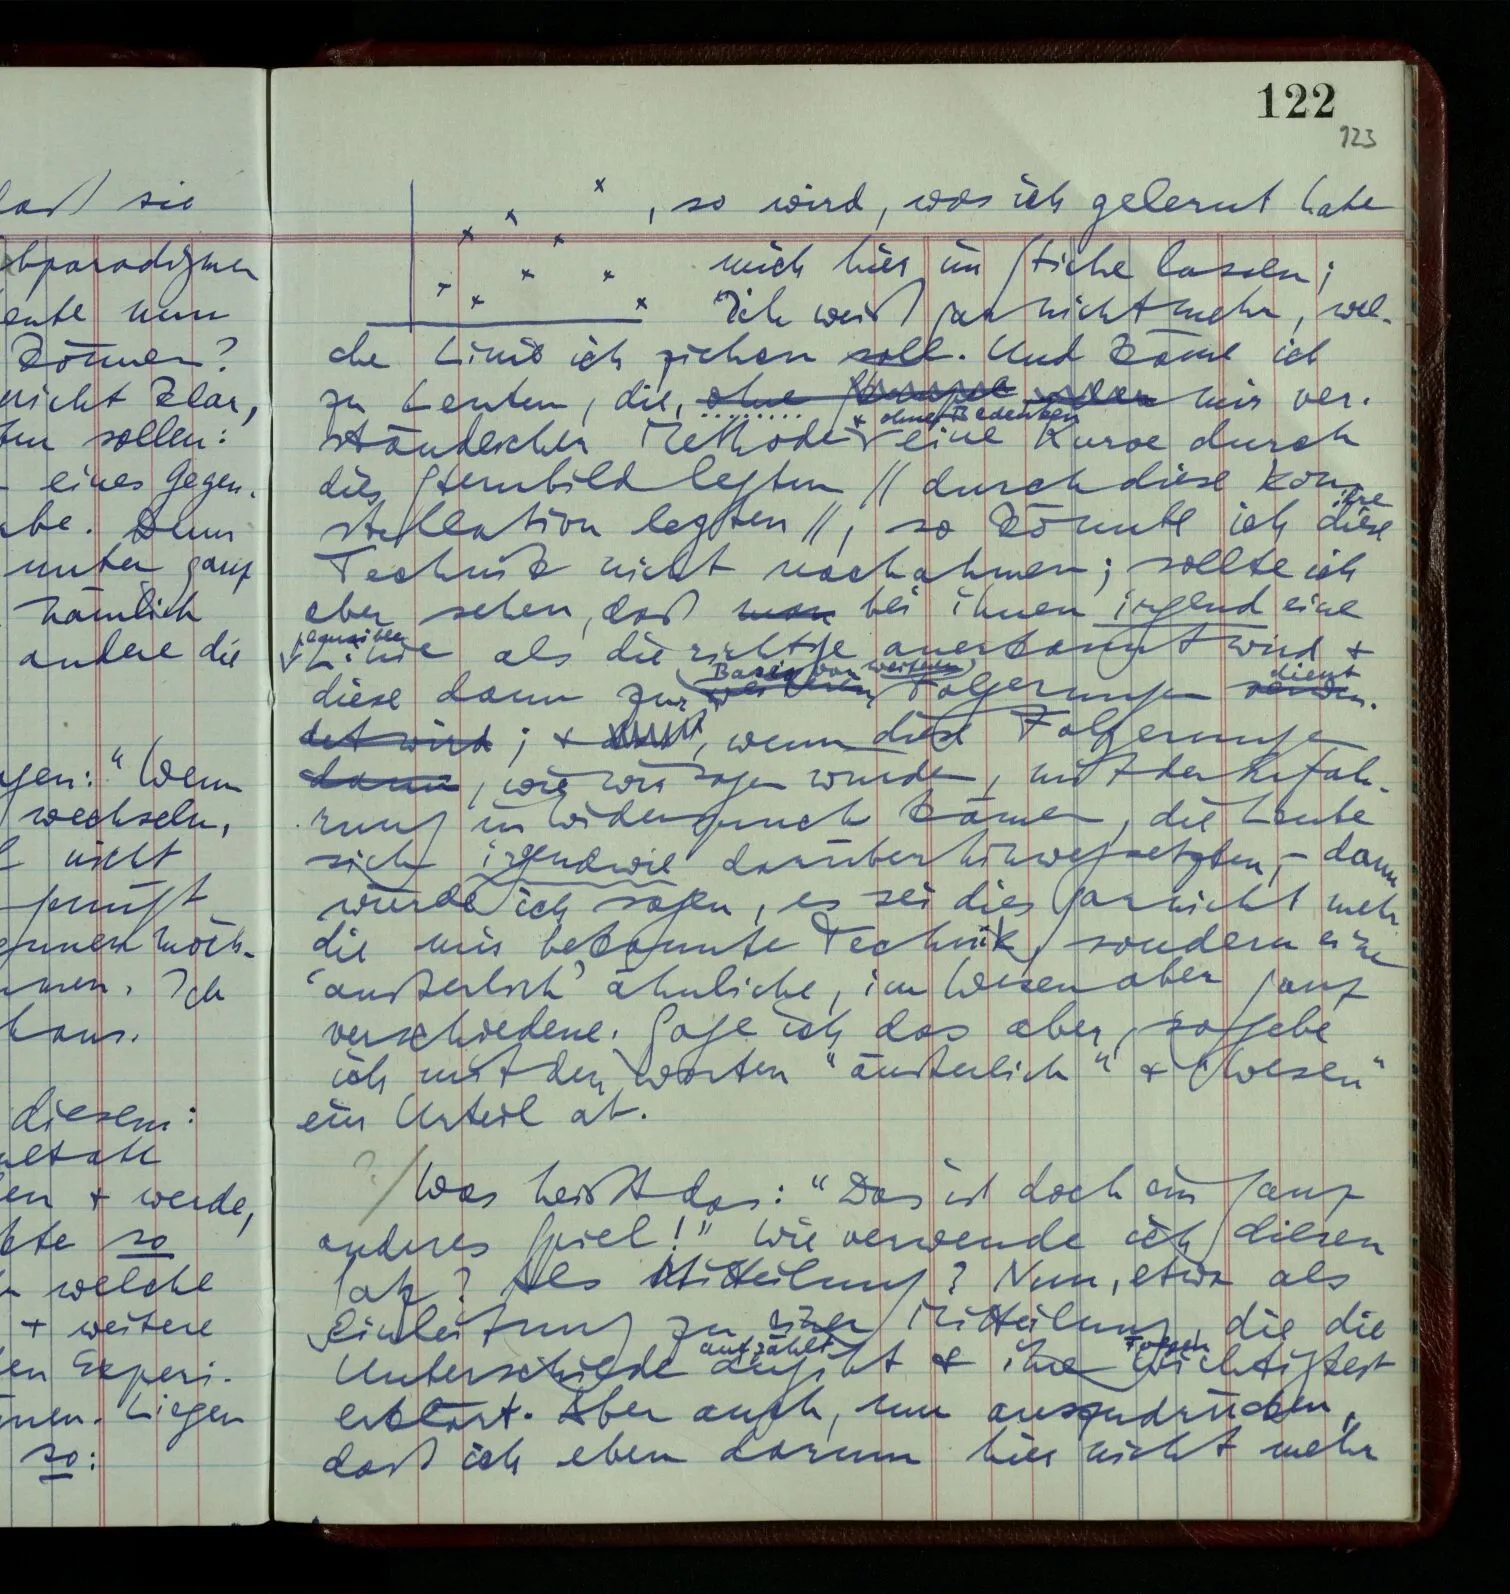 daß sie
bparadigmen
ente nun
können?
nicht klar,
sollen:
eines Gegen-
be. Denn
unter ganz
nämlich
andere die
gen: "Wenn
wechseln,
nicht
prüft
möch-
men. Ich
haus.
diesem:
en + werde,
kte so
welche
+ weitere
en Experi-
nen. Liegen
so:
122
123
, so wird, was ich gelernt habe
mich hier im Stiche lassen;
Ich weiß gar nicht mehr, wel-
che Linie ich ziehen soll. Und käme ich
zu Leuten, die, ohne Skrupel mir ver-
ständlicher Methode + ohne Bedenken eine Kurve durch
dies Sternbild legten // durch diese Kon-
stellation legten //, so könnte ich diese ihre
Technik nicht nachahmen; sollte ich
aber sehen, daß man bei ihnen irgend eine
plausible Linie als die richtige anerkannt wird +
diese dann zur Basis von weiteren weiteren Folgerungen dient verwen-
det wird; + , wenn diese Folgerungen
dann, wie wir sagen würden, mit der Erfah-
rung in Widerspruch kämen, die Leute
sich irgendwie darüber hinwegsetzten, – dann
würde ich sagen, es sei dies gar nicht mehr
die mir bekannte Technik, sondern eine
'äußerlich' ähnliche, im Wesen aber ganz
verschiedene. Sage ich das aber, so gebe
ich mit den Worten "äußerlich" + "Wesen"
ein Urteil ab.
?/ Was heißt das: "Das ist doch ein ganz
anderes Spiel!" Wie verwende ich diesen
Satz? Als Mitteilung? Nun, etwa als
Einleitung zu einer Mitteilung, die die
Unterschiede aufzählt angibt + ihre Folgen wichtigsten
erklärt. Aber auch, um auszudrücken,
daß ich eben darum hier nicht mehr